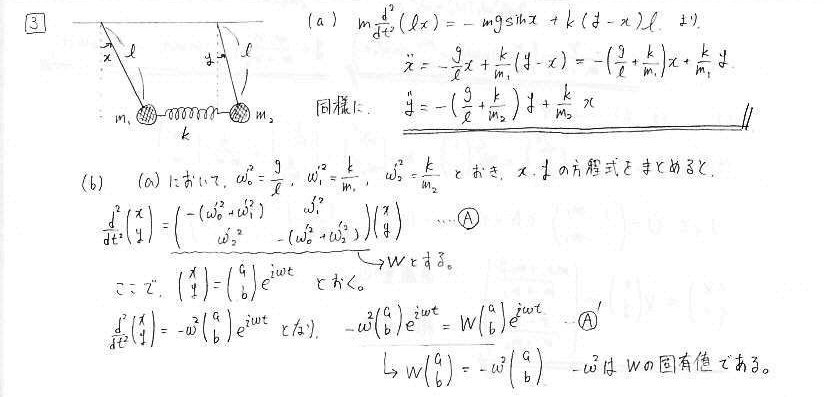 3
x l y l
m₁ k m₂
(a) m d²/dt² (lx) = - mg sin x + k (y - x) l. より,
ẍ = - g/l x + k/m₁ (y - x) = -(g/l + k/m₁) x + k/m₁ y.
同様に. ÿ = -(g/l + k/m₂) y + k/m₂ x
(b) (a) において, ω₀'² = g/l, ω₁'² = k/m₁, ω₂'² = k/m₂ とおき, x, y の方程式をまとめると,
d²/dt² (x y) = (-(ω₀'²+ω₁'²) ω₁'² ω₂'² -(ω₀'²+ω₂'²)) (x y) ..... Ⓐ
→ Wとする。
ここで, (x y) = (a b) e^{iωt} とおく。
d²/dt² (x y) = -ω² (a b) e^{iωt} となり, -ω² (a b) e^{iωt} = W (a b) e^{iωt} ... Ⓐ'
↳ W (a b) = -ω² (a b) -ω² は W の固有値である。